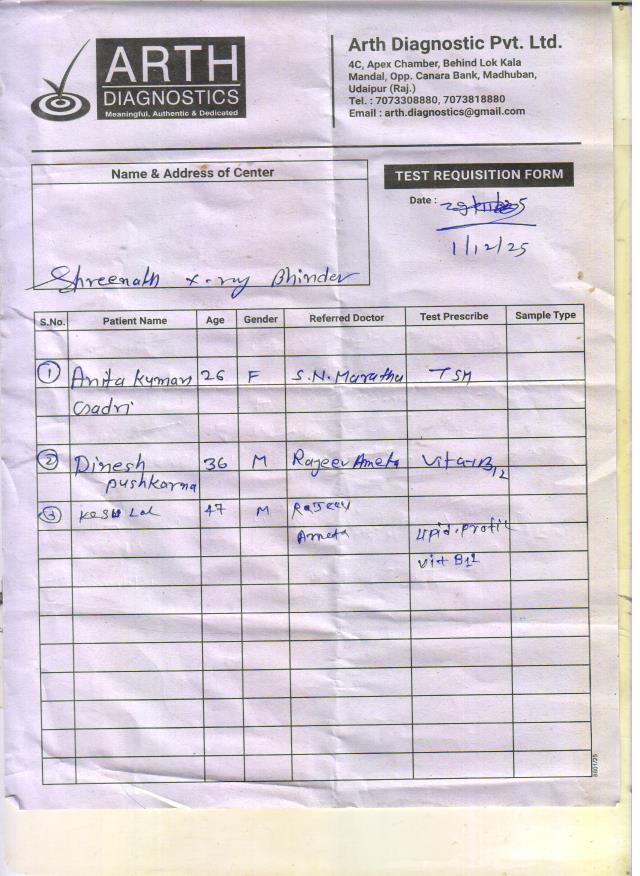 ARTH
DIAGNOSTICS
Meaningful, Authentic & Dedicated
Arth Diagnostic Pvt. Ltd.
4C, Apex Chamber, Behind Lok Kala
Mandal, Opp. Canara Bank, Madhuban,
Udaipur (Raj.)
Tel. : 7073308880, 7073818880
Email : arth.diagnostics@gmail.com
Name & Address of Center
TEST REQUISITION FORM
Date :
1/12/25
Shreenath x-ray Bhinder
S.No. Patient Name Age Gender Referred Doctor Test Prescribe Sample Type
1 Anita Kumari 26 F S.N. Maratha TSH
2 Dinesh 36 M Rajeev Ameta Vita-B12
pushkarna
3 Kesu Lal 47 M Rajeev
Ameta Lipid.profil
vit B12
8601/25